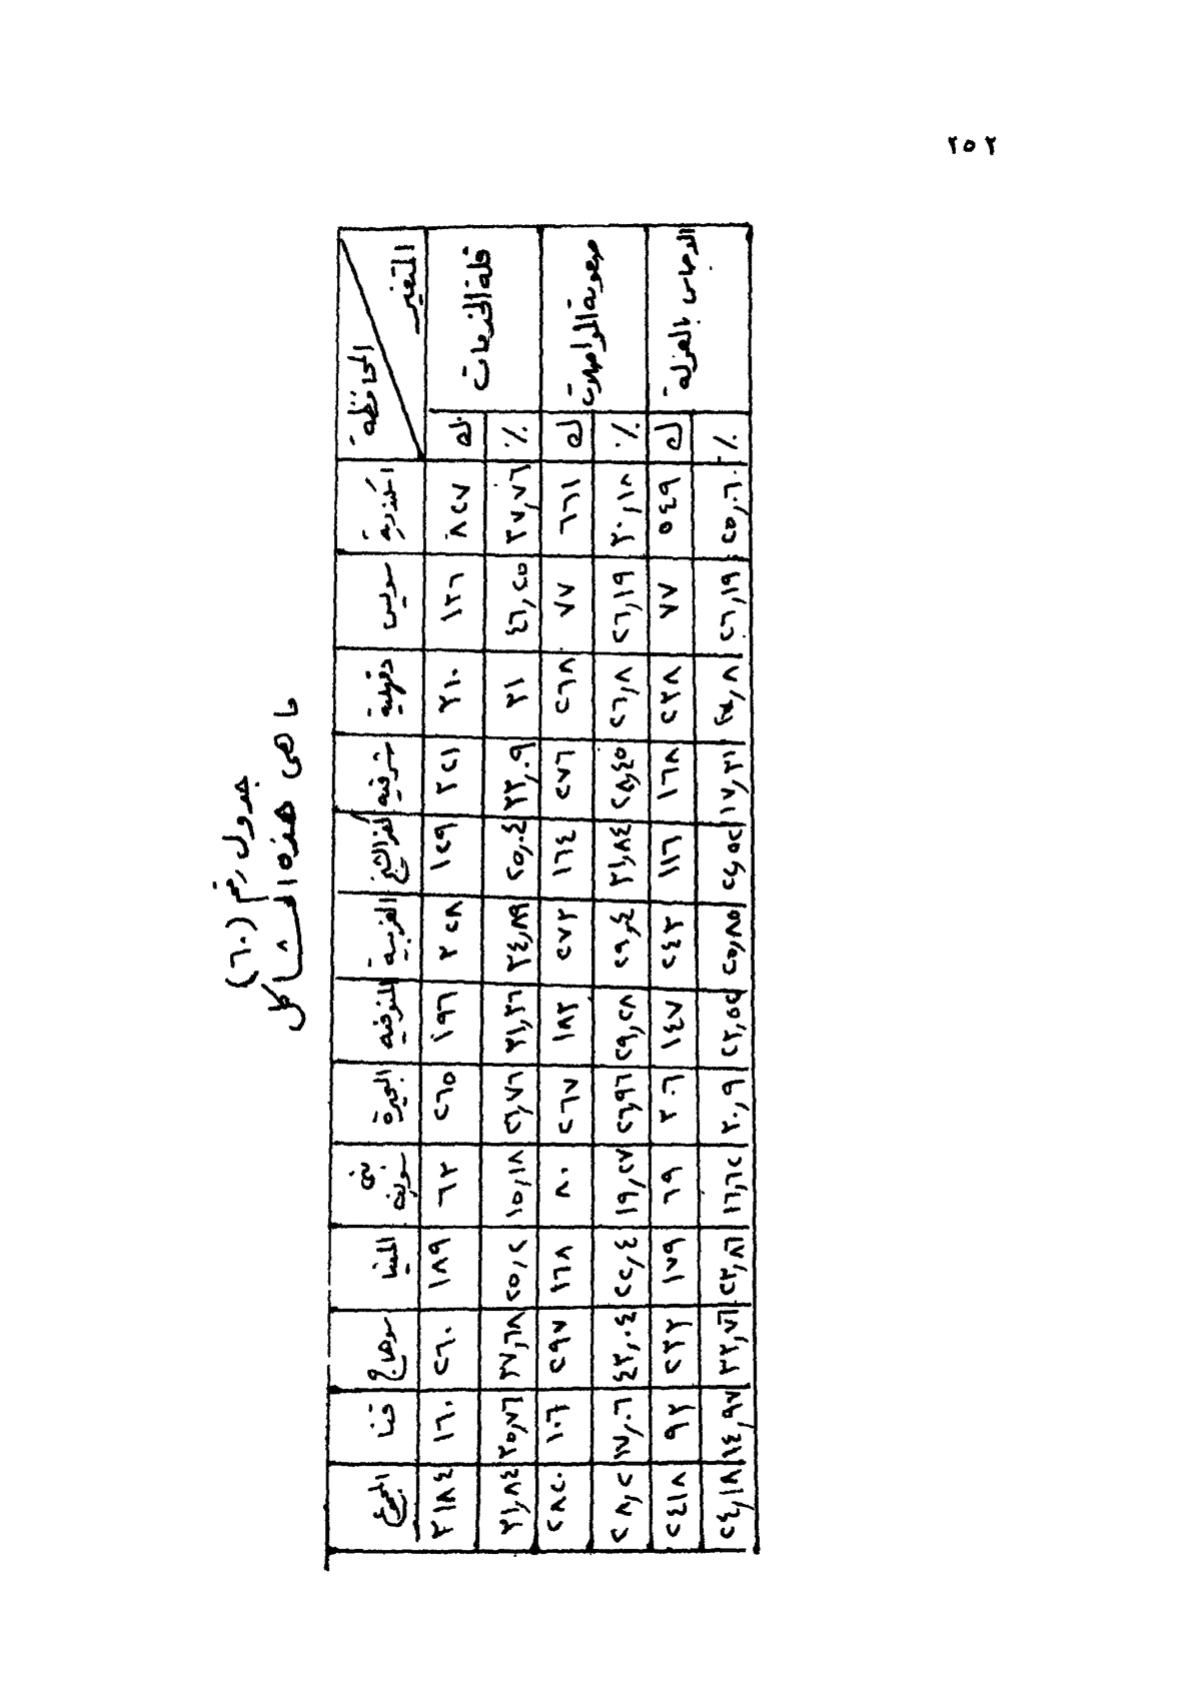 ٢٥٢
جدول رقم (٦٠)
ما هى هذه المشاكل
المتغير المحافظة اسكندرية سويس دقهلية شرقيه كفر الشيخ الغربية المنوفيه البحيرة بنى سويف المنيا سوهاج قنا المجموع
قلة الخدمات ك ٨٢٧ ١٣٦ ٣١٠ ٣٢١ ١٢٩ ٣٢٨ ١٩٦ ٢٦٥ ٦٣ ١٨٩ ٢٦٠ ١٦٠ ٣١٨٤
٪ ٣٧,٧٦ ٤٦,٢٥ ٣١ ٣٣,٠٩ ٢٥,٠٤ ٣٤,٨٩ ٣١,٣٦ ٢٦,٧٦ ١٥,١٨ ٢٥,٢ ٣٧,٦٨ ٢٥,٧٦ ٣١,٨٤
صعوبة المواصلات ك ٦٦١ ٧٧ ٢٦٨ ٢٧٦ ١٦٤ ٢٧٣ ١٨٣ ٢٦٧ ٨٠ ١٦٨ ٢٩٧ ١٠٦ ٢٨٢٠
٪ ٣٠,١٨ ٢٦,١٩ ٢٦,٨ ٢٨,٤٥ ٣١,٨٤ ٢٩,٠٤ ٢٩,٢٨ ٢٦,٩٦ ١٩,٢٧ ٢٢,٤ ٤٣,٠٤ ١٧,٠٦ ٢٨,٢
الاحساس بالعزلة ك ٥٤٩ ٧٧ ٢٣٨ ١٦٨ ١١٦ ٢٤٣ ١٤٧ ٣٠٦ ٦٩ ١٧٩ ٢٣٣ ٩٣ ٢٤١٨
٪ ٢٥,٠٦ ٢٦,١٩ ٢٣,٨ ١٧,٣١ ٢٢,٥٢ ٢٥,٨٥ ٢٣,٥٢ ٣٠,٩ ١٦,٦٢ ٢٣,٨٦ ٣٣,٧٦ ١٤,٩٧ ٢٤,١٨